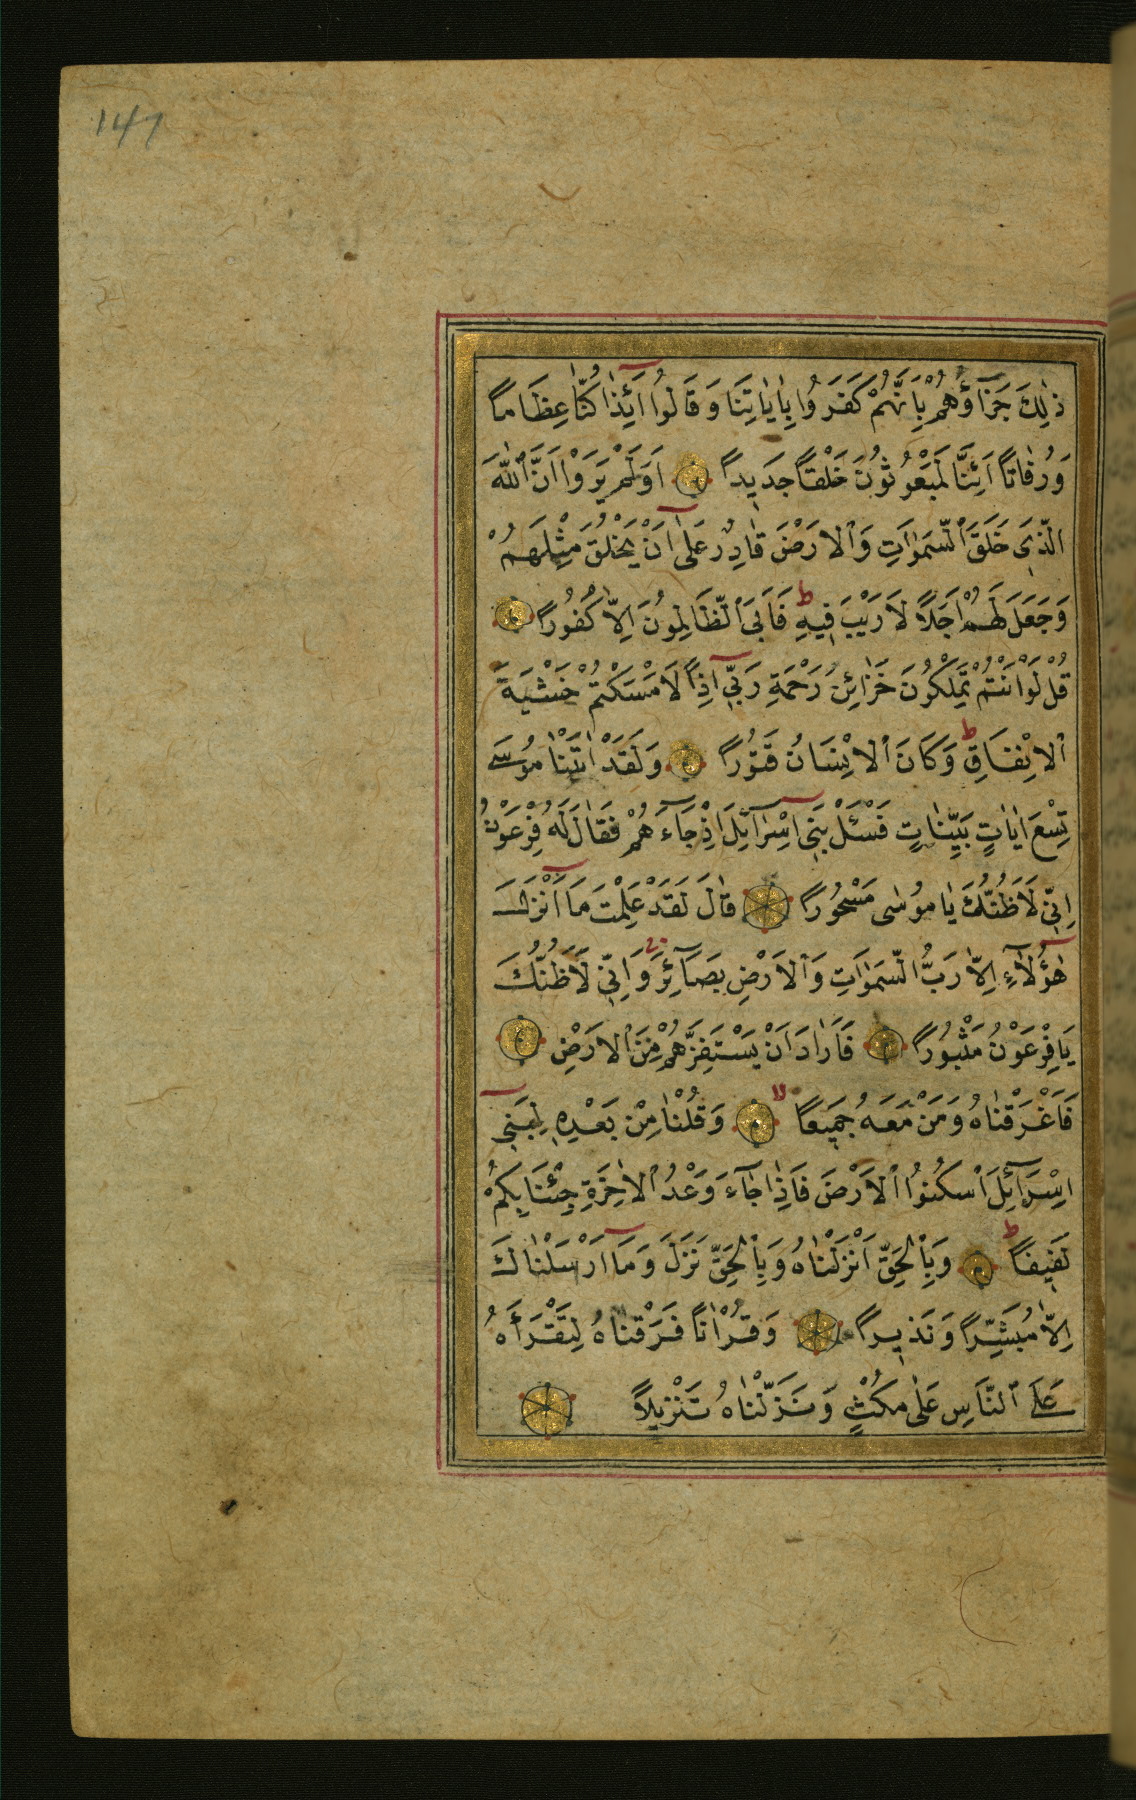 147
ذٰلِكَ جَزَآؤُهُمْ بِاَنَّهُمْ كَفَرُوا بِاٰيَاتِنَا وَقَالُوا ءَاِذَا كُنَّا عِظَامًا
وَرُفَاتًا ءَاِنَّا لَمَبْعُوثُونَ خَلْقًا جَدِيدًا اَوَلَمْ يَرَوْا اَنَّ اللّٰهَ
الَّذِي خَلَقَ السَّمٰوَاتِ وَالْاَرْضَ قَادِرٌ عَلٰٓى اَنْ يَخْلُقَ مِثْلَهُمْ
وَجَعَلَ لَهُمْ اَجَلًا لَا رَيْبَ فِيهِ ط فَاَبَى الظَّالِمُونَ اِلَّا كُفُورًا
قُلْ لَوْ اَنْتُمْ تَمْلِكُونَ خَزَائِنَ رَحْمَةِ رَبِّٓي اِذًا لَاَمْسَكْتُمْ خَشْيَةَ
الْاِنْفَاقِ ط وَكَانَ الْاِنْسَانُ قَتُورًا وَلَقَدْ اٰتَيْنَا مُوسٰى
تِسْعَ اٰيَاتٍ بَيِّنَاتٍ فَسْئَلْ بَنِٓي اِسْرَآئِلَ اِذْ جَآءَهُمْ فَقَالَ لَهُ فِرْعَوْنُ
اِنِّي لَاَظُنُّكَ يَا مُوسٰى مَسْحُورًا قَالَ لَقَدْ عَلِمْتَ مَٓا اَنْزَلَ
هٰٓؤُلَآءِ اِلَّا رَبُّ السَّمٰوَاتِ وَالْاَرْضِ بَصَآئِرَ وَاِنِّي لَاَظُنُّكَ
يَا فِرْعَوْنُ مَثْبُورًا فَاَرَادَ اَنْ يَسْتَفِزَّهُمْ مِنَ الْاَرْضِ
فَاَغْرَقْنَاهُ وَمَنْ مَعَهُ جَمِيعًا لا وَقُلْنَا مِنْ بَعْدِهِ لِبَنِٓي
اِسْرَآئِلَ اسْكُنُوا الْاَرْضَ فَاِذَا جَآءَ وَعْدُ الْاٰخِرَةِ جِئْنَا بِكُمْ
لَفِيفًا ط وَبِالْحَقِّ اَنْزَلْنَاهُ وَبِالْحَقِّ نَزَلَ وَمَٓا اَرْسَلْنَاكَ
اِلَّا مُبَشِّرًا وَنَذِيرًا وَقُرْاٰنًا فَرَقْنَاهُ لِتَقْرَأَهُ
عَلَى النَّاسِ عَلٰى مُكْثٍ وَنَزَّلْنَاهُ تَنْزِيلًا